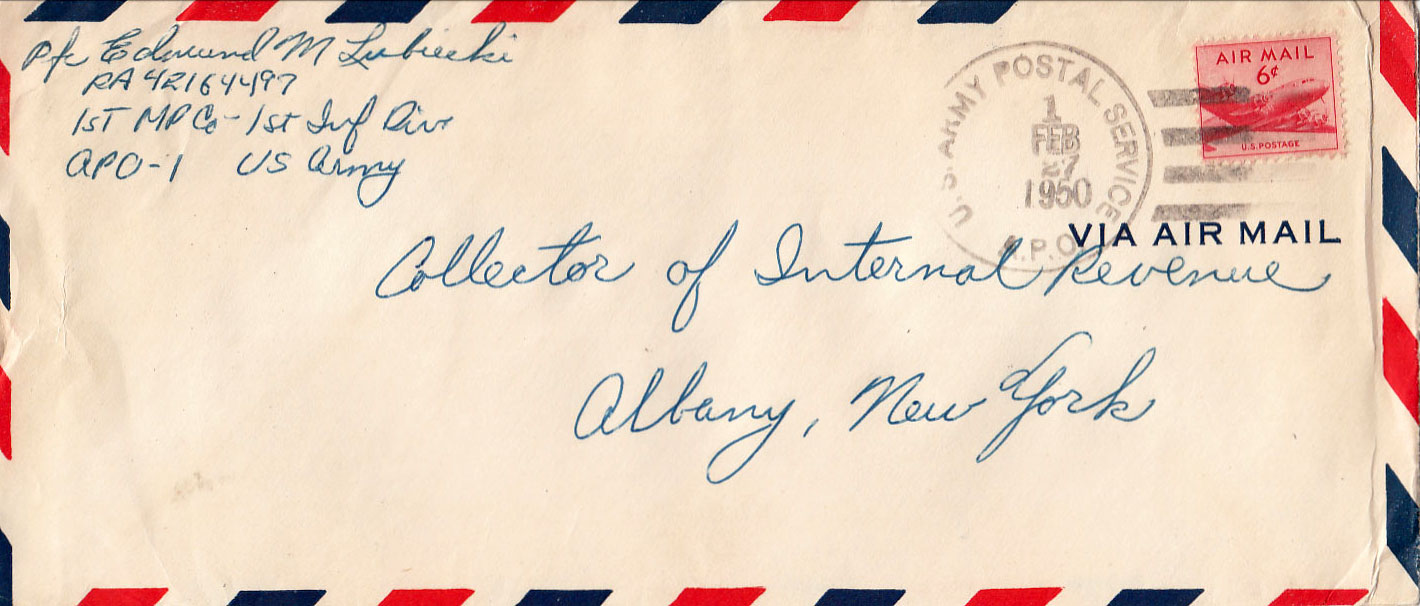 Pfc Edmund M Lubiecki
RA 42164497
1ST MP Co - 1st Inf Div
APO-1 US Army
U.S. ARMY POSTAL SERVICE
1
FEB
27
1950
A.P.O.
AIR MAIL
6¢
U.S. POSTAGE
VIA AIR MAIL
Collector of Internal Revenue
Albany, New York